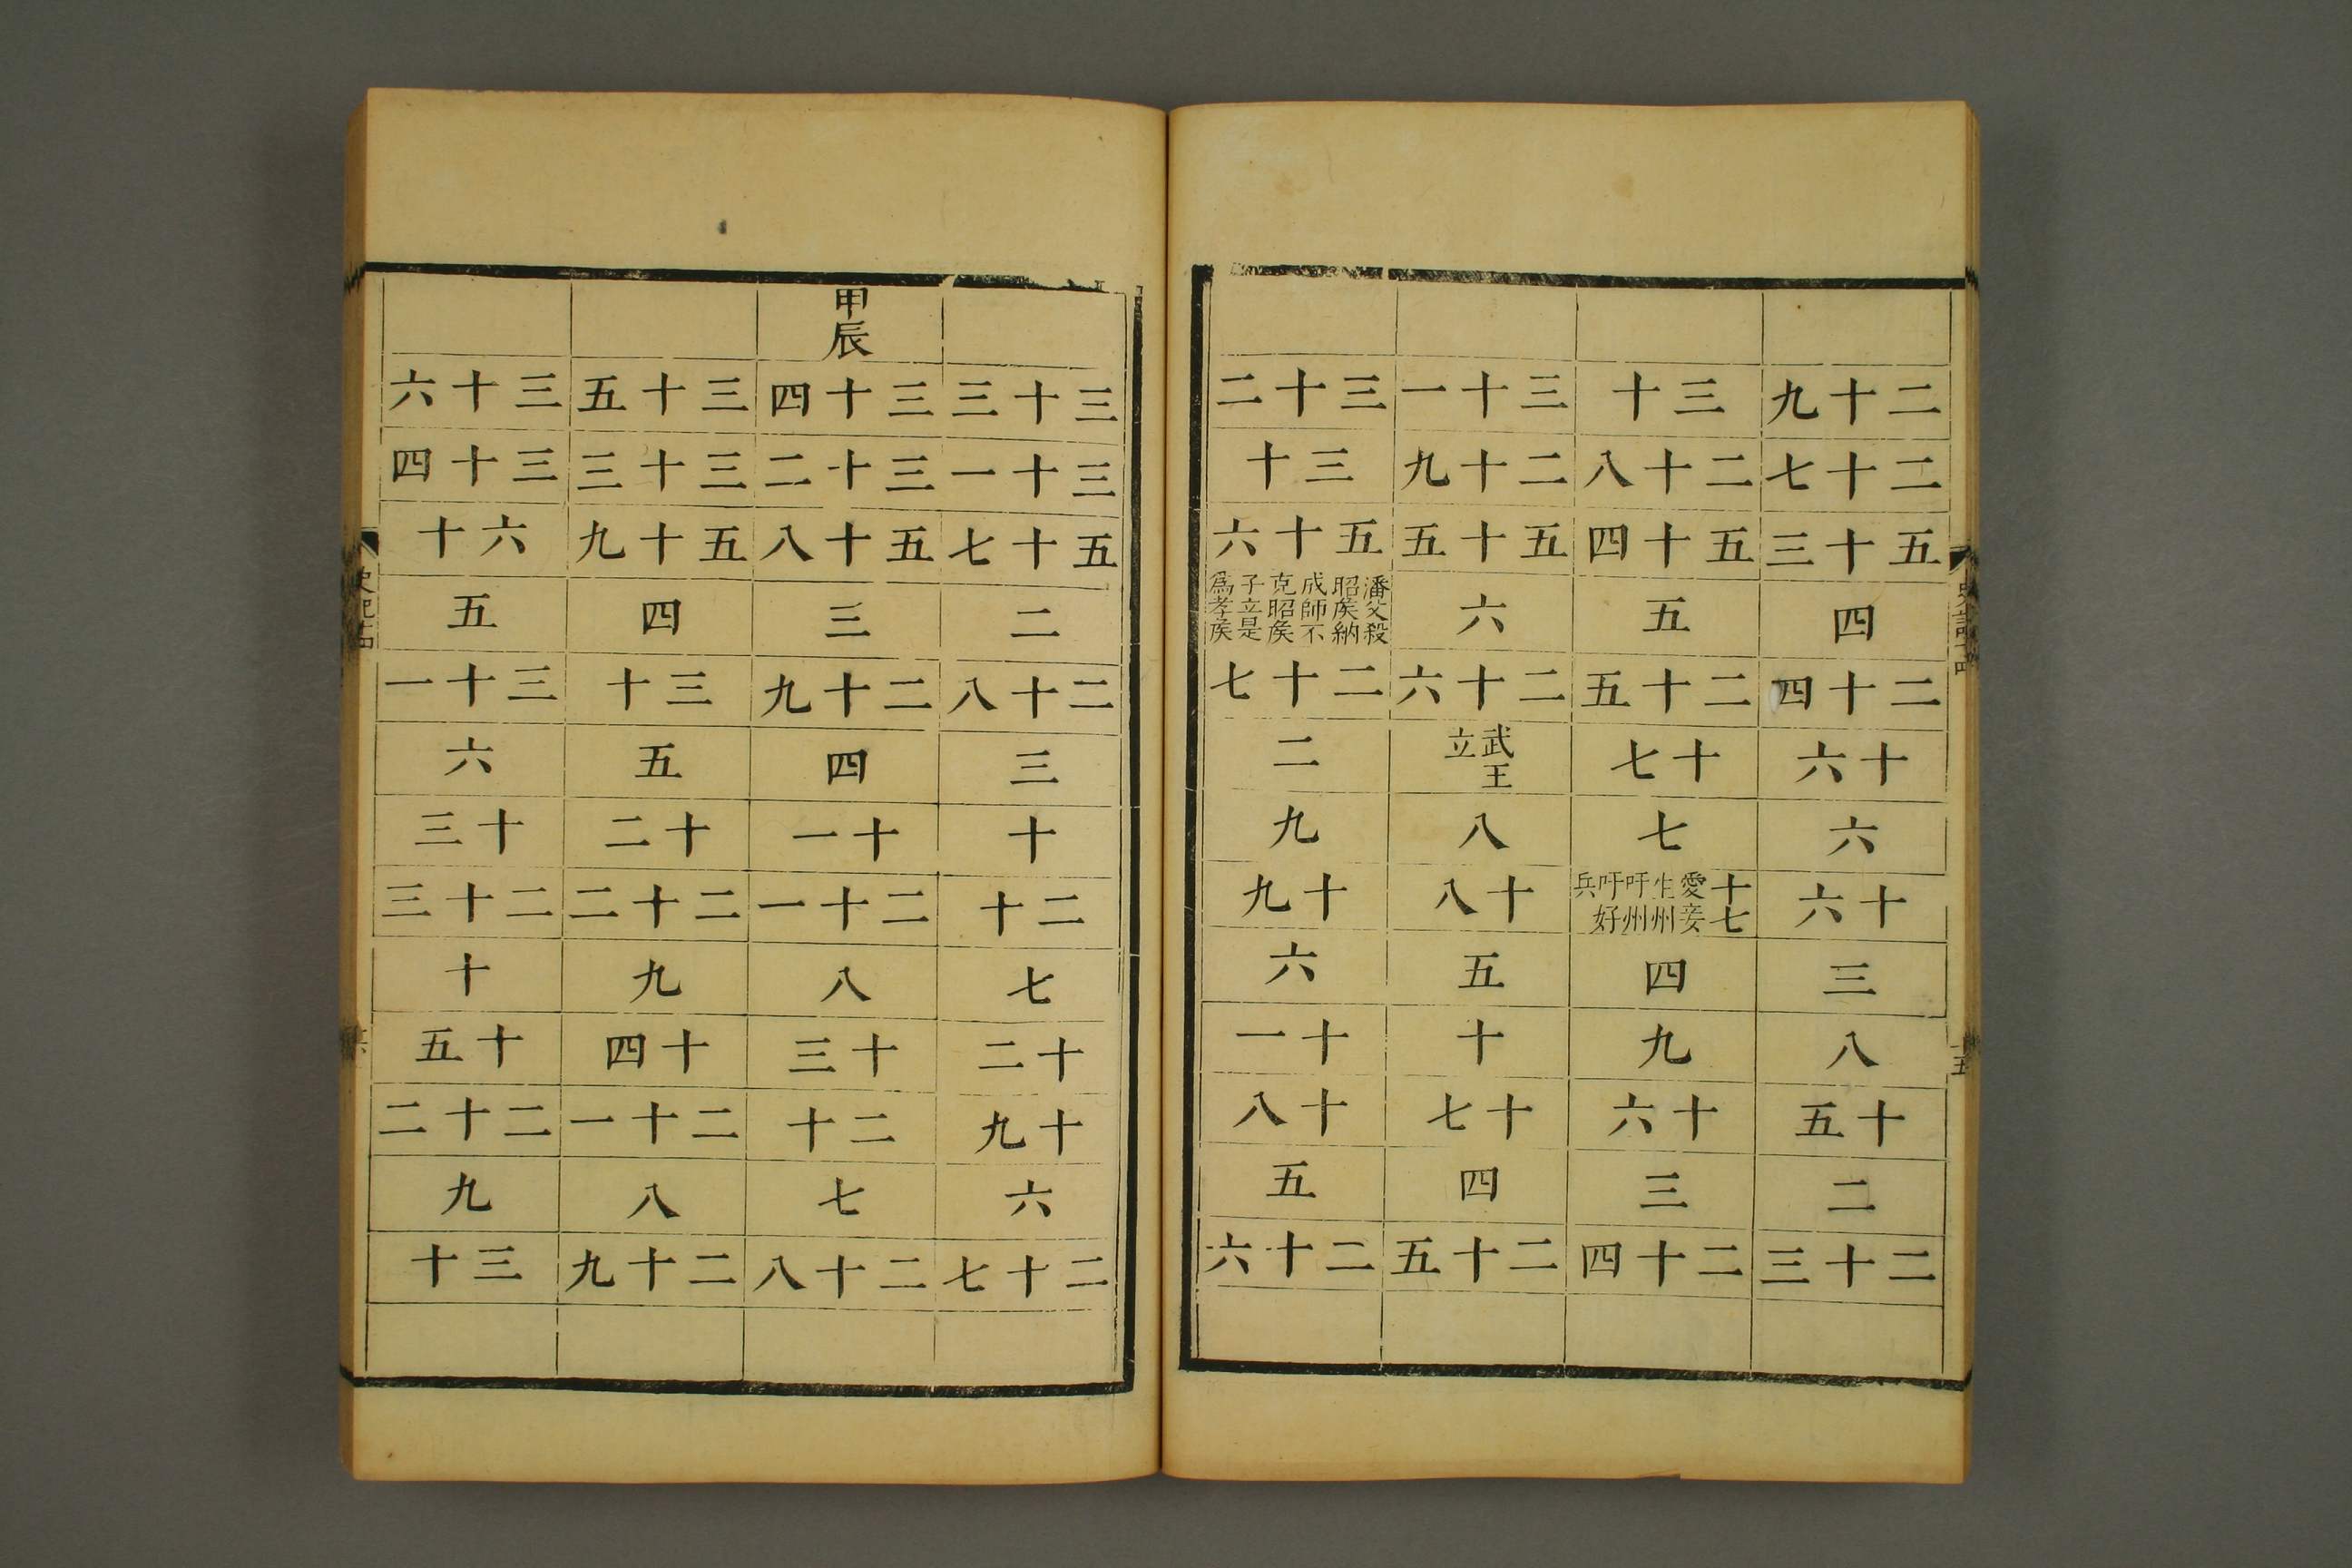 二十九
二十七
五十三
四
二十四
十六
六
十六
三
八
十五
二
二十三
三十
二十八
五十四
五
二十五
十七
七
十七
愛妾
生州
吁州
吁好
兵
四
九
十六
三
二十四
三十一
二十九
五十五
六
二十六
武王
立
八
十八
五
十
十七
四
二十五
三十二
三十
五十六
潘父殺
昭矦納
成師不
克昭矦
子立是
爲孝矦
二十七
二
九
十九
六
十一
十八
五
二十六
三十三
三十一
五十七
二
二十八
三
十
二十
七
十二
十九
六
二十七
甲辰
三十四
三十二
五十八
三
二十九
四
十一
二十一
八
十三
二十
七
二十八
三十五
三十三
五十九
四
三十
五
十二
二十二
九
十四
二十一
八
二十九
三十六
三十四
六十
五
三十一
六
十三
二十三
十
十五
二十二
九
三十